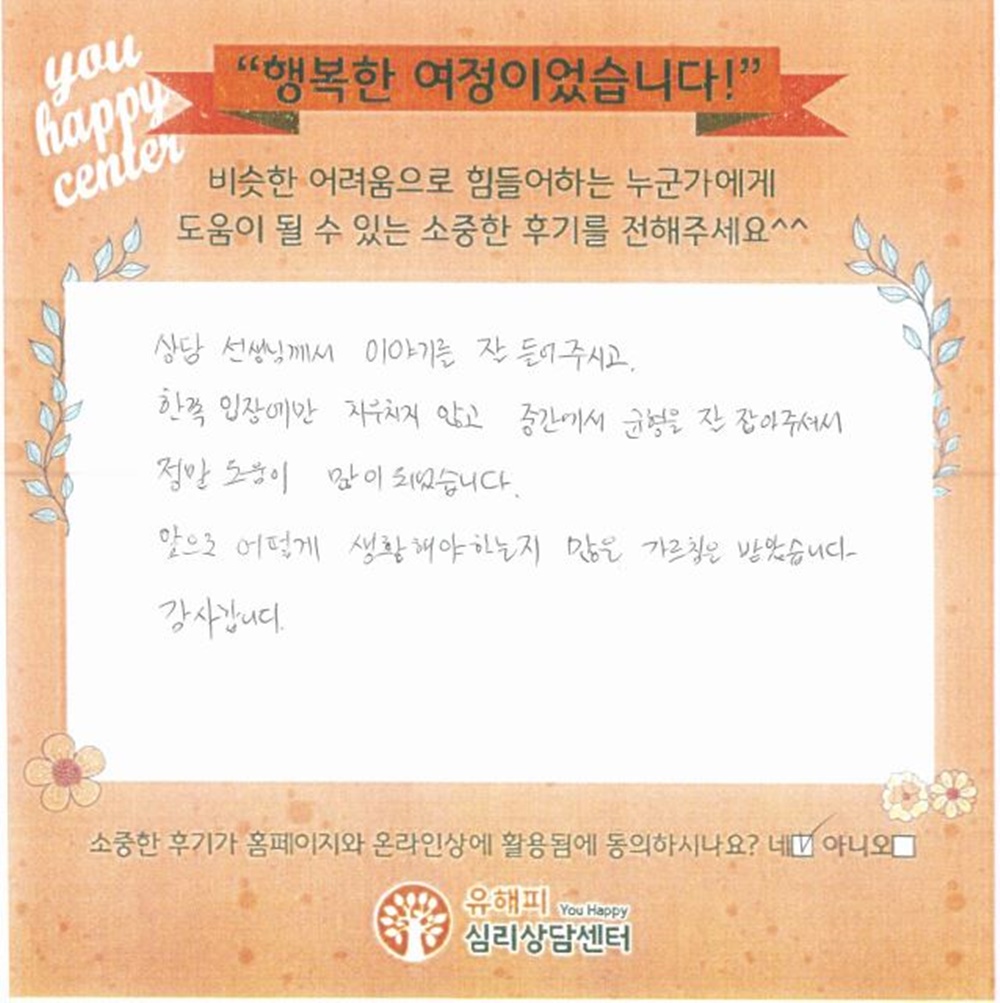 you
happy
center
“행복한 여정이었습니다!”
비슷한 어려움으로 힘들어하는 누군가에게
도움이 될 수 있는 소중한 후기를 전해주세요^^
상담 선생님께서 이야기를 잘 들어주시고,
한쪽 입장에만 치우치지 않고 중간에서 균형을 잘 잡아주셔서
정말 도움이 많이 되었습니다.
앞으로 어떻게 생활해야하는지 많은 가르침을 받았습니다-
감사합니다.
소중한 후기가 홈페이지와 온라인상에 활용됨에 동의하시나요? 네☑ 아니오☐
유해피 You Happy
심리상담센터